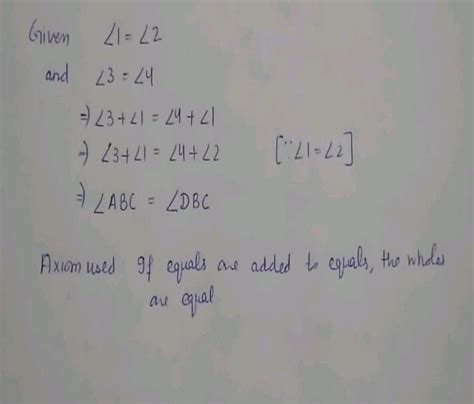 Given ∠1 = ∠2
and ∠3 = ∠4
⇒ ∠3 + ∠1 = ∠4 + ∠1
⇒ ∠3 + ∠1 = ∠4 + ∠2 [∵ ∠1 = ∠2]
⇒ ∠ABC = ∠DBC
Axiom used If equals are added to equals, the wholes
are equal